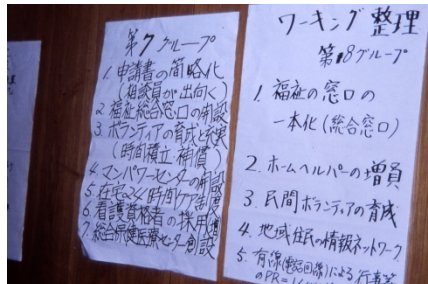 第7グループ
1. 申請書の簡略化
(相談員が出向く)
2 福祉総合窓口の開設
3. ボランティアの育成と充実
(時間積立 補償)
4. マンパワーセンターの開設
5 在宅24時間ケア
6 看護資格者の採用
7 総合保健医療センター創設
ワーキング整理
第8グループ
1. 福祉の窓口の
一本化(総合窓口)
2. ホームヘルパーの増員
3. 民間ボランティアの育成
4. 地域住民の情報ネットワーク
5. 有線(電話回線)による行事等
のPR